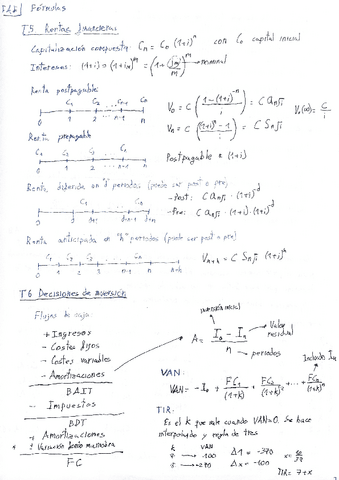 Fórmulas
T5 Rentas financieras
Capitalización compuesta: Cn = C0 (1+i)^n con C0 capital inicial
Intereses: (1+i) = (1+im)^m = (1 + jm/m)^m → nominal
Renta postpagable
C1 C2 Cn
0 1 2 n
V0 = C (1-(1+i)^-n / i) = C an¬i
Vn = C ((1+i)^n - 1 / i) = C Sn¬i
V(∞) = C/i
Renta prepagable
C1 C2 C3 Cn
0 1 2 n
Postpagable * (1+i)
Renta diferida en "d" periodos (puede ser post o pre)
- Post: C an¬i · (1+i)^-d
- Pre: C an¬i · (1+i) · (1+i)^-d
Renta anticipada en "h" periodos (puede ser post o pre)
0 1 2 n-1 n n+h
Vn+h = C Sn¬i (1+i)^h
T6 Decisiones de inversión
Flujos de caja:
+ Ingresos
- Costes fijos
- Costes variables
- Amortizaciones
BAIT
- Impuestos
BDT
+ Amortizaciones
FC
inversión inicial
A = I0 - In / n
Valor residual
periodos
Incluido In
VAN:
VAN = -I0 + FC1/(1+k) + FC2/(1+k)^2 + ... + FCn/(1+k)^n
TIR:
Es el k que sale cuando VAN=0. Se hace
interpolando y regla de tres
k VAN
TIR = 7+x